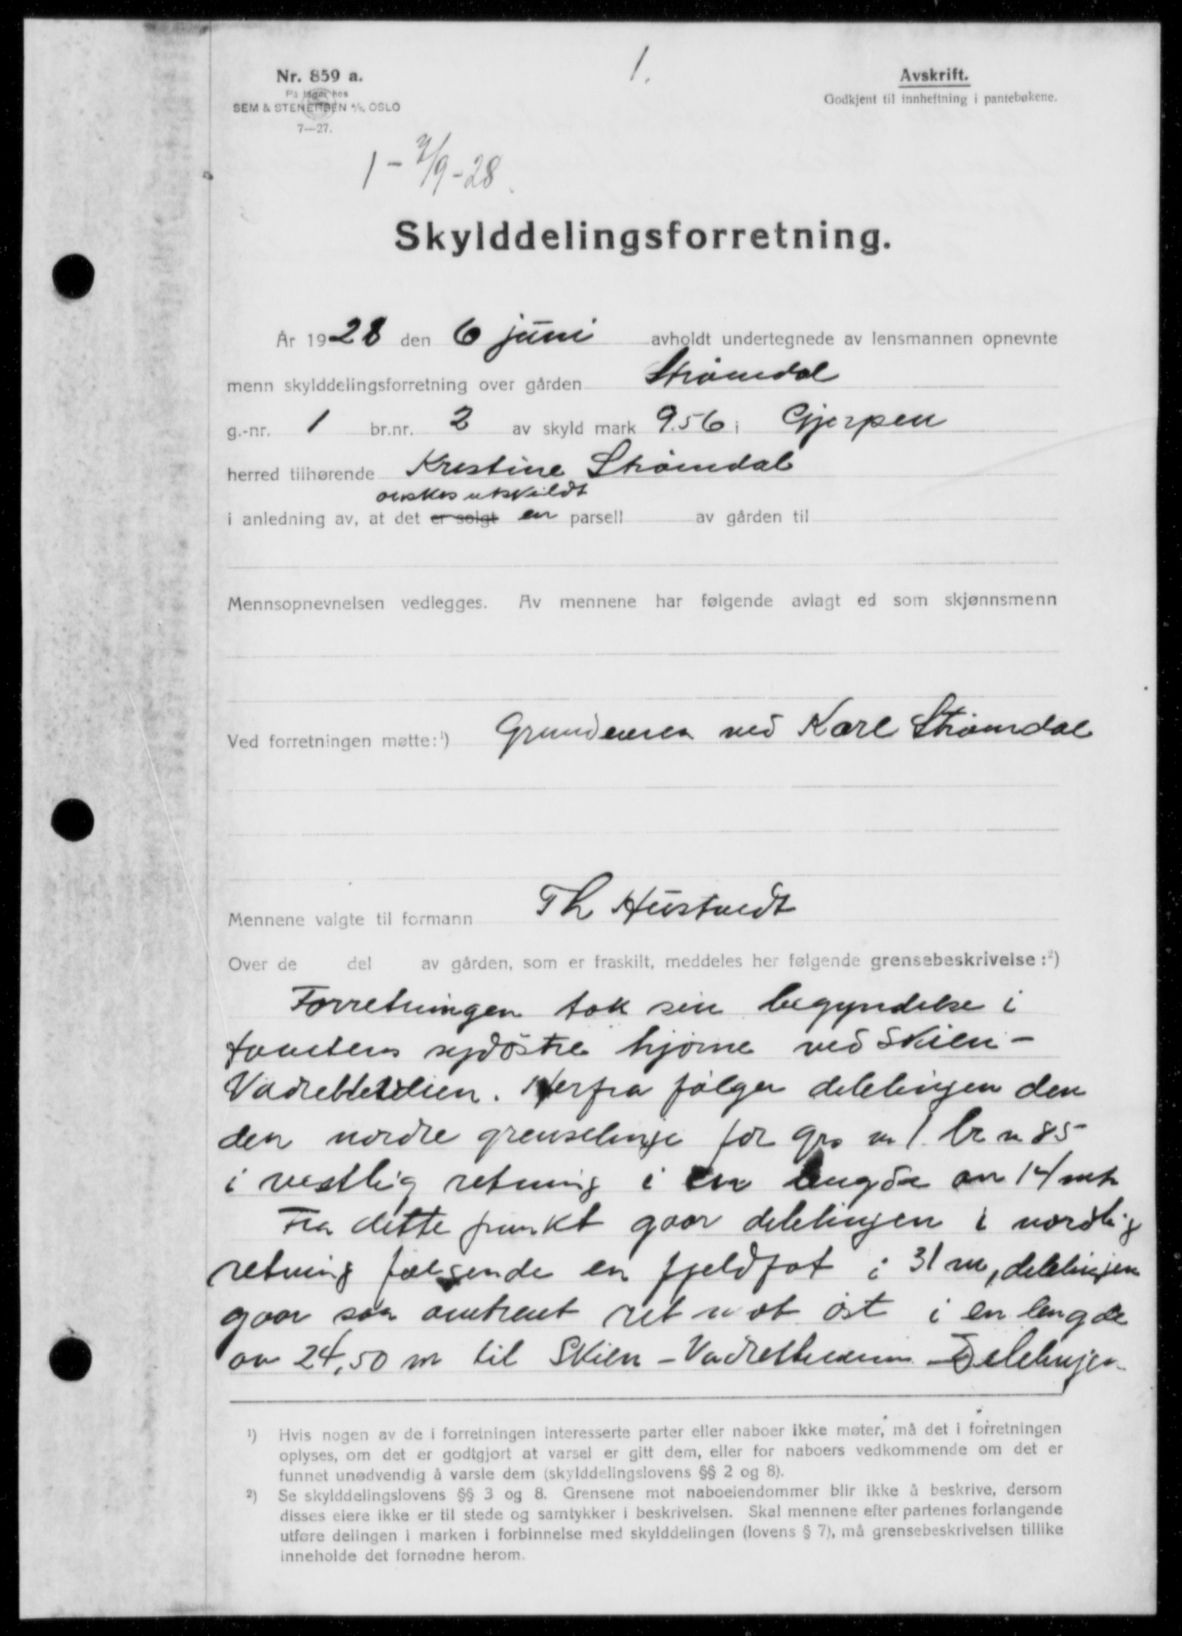 1.
Nr. 859 a.
På lager hos
SEM & STENERSEN A/S, OSLO
7—27.
Avskrift.
Godkjent til innheftning i pantebøkene.
1 - 7/9-28
Skylddelingsforretning.
År 1928 den 6 juni avholdt undertegnede av lensmannen opnevnte
menn skylddelingsforretning over gården Strömdal
g.-nr. 1 br.nr. 2 av skyld mark 9.56 i Gjerpen
herred tilhørende Kristine Strömdal
önskes utskildt
i anledning av, at det er solgt en parsell av gården til
Mennsopnevnelsen vedlegges. Av mennene har følgende avlagt ed som skjønnsmenn
Ved forretningen møtte:¹) Grundeieren ved Karl Strömdal
Mennene valgte til formann Th Hustvedt
Over de del av gården, som er fraskilt, meddeles her følgende grensebeskrivelse:²)
Forretningen tok sin begyndelse i
tomtens sydöstre hjörne ved Skien-
. Herfra fölger delelinjen den
den nordre grenselinje for grs nr 1 br n 85
i vestlig retning i en lengde av 14 mtr
Fra dette punkt gaar delelinjen i nordlig
retning fölgende en fjeldfot i 31 m, delelinjen
gaar saa omtrent ret mot öst i en lengde
av 24,50 m til Skien - Delelinjen
¹) Hvis nogen av de i forretningen interesserte parter eller naboer ikke møter, må det i forretningen
oplyses, om det er godtgjort at varsel er gitt dem, eller for naboers vedkommende om det er
funnet unødvendig å varsle dem (skylddelingslovens §§ 2 og 8).
²) Se skylddelingslovens §§ 3 og 8. Grensene mot naboeiendommer blir ikke å beskrive, dersom
disses eiere ikke er til stede og samtykker i beskrivelsen. Skal mennene efter partenes forlangende
utføre delingen i marken i forbinnelse med skylddelingen (lovens § 7), må grensebeskrivelsen tillike
inneholde det fornødne herom.